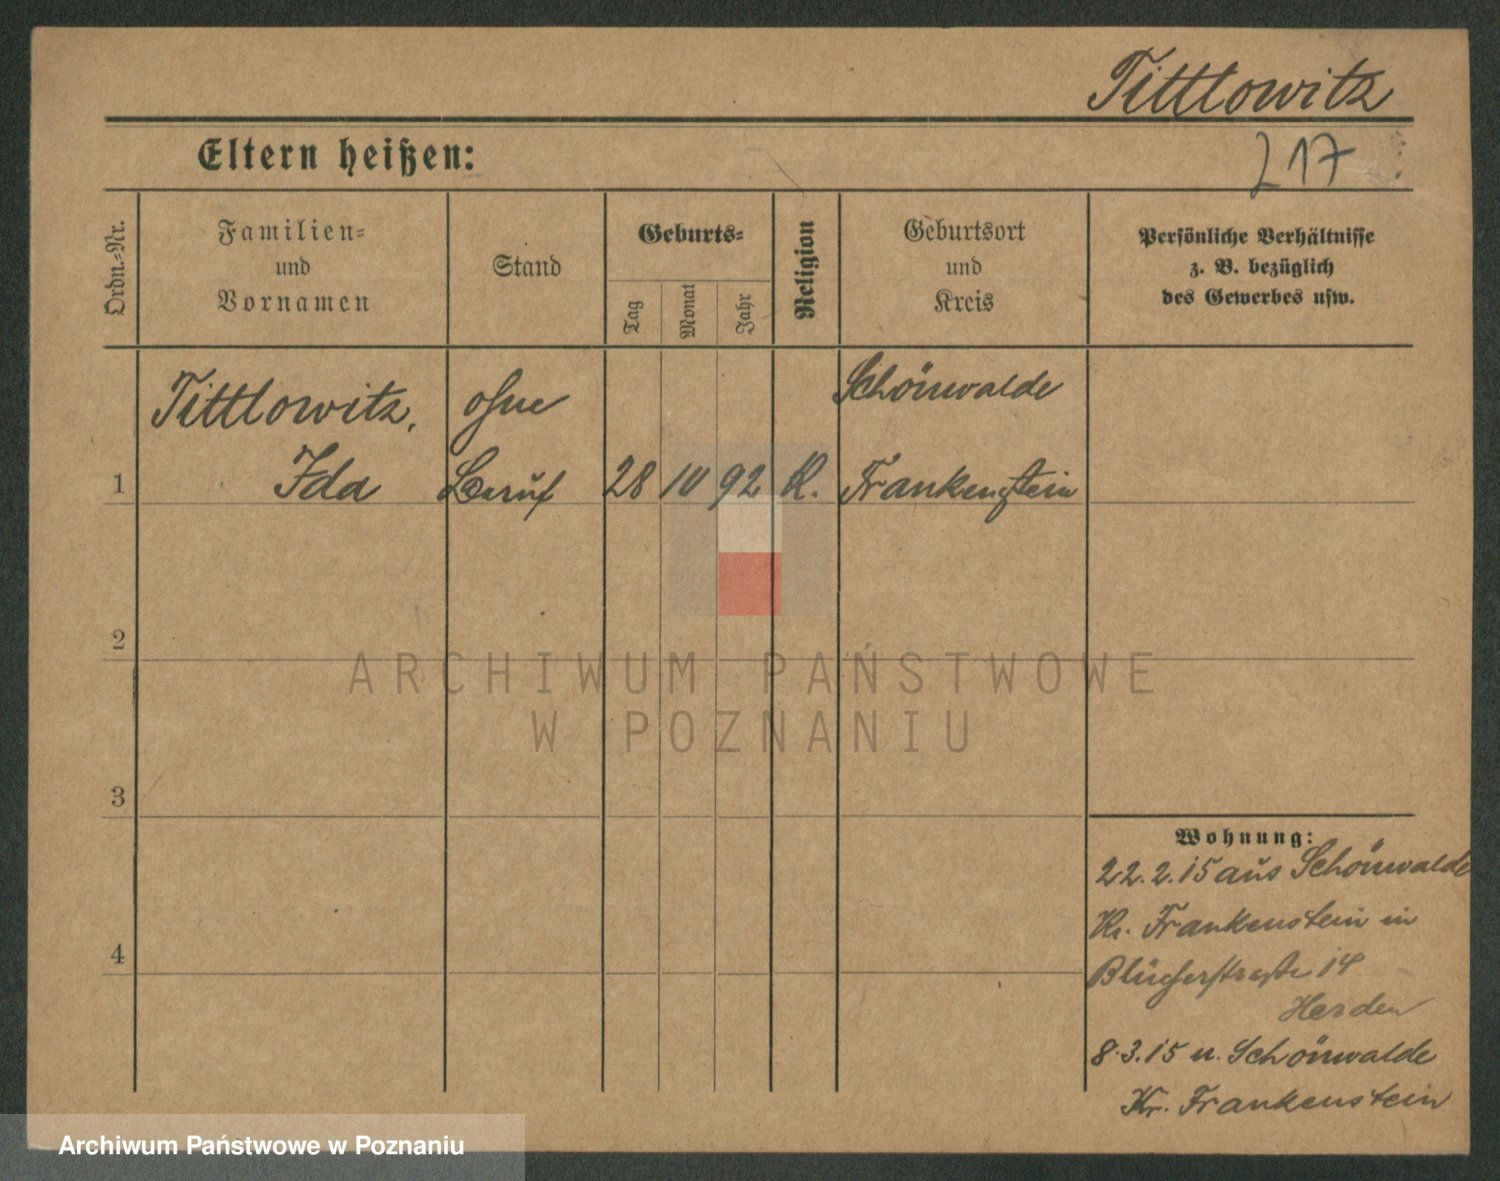 Tittlowitz
217
Eltern heißen:
Ordn.-Nr.
Familien-
und
Vornamen
Stand
Geburts-
Tag
Monat
Jahr
Religion
Geburtsort
und
Kreis
Persönliche Verhältnisse
z. B. bezüglich
des Gewerbes usw.
Tittlowitz, ohne Schönwalde
1 Ida Beruf 28 10 92 K. Frankenstein
2
3
4
Wohnung:
22.2.15 aus Schönwalde
Kr. Frankenstein in
Blücherstraße 14
Herden
8.3.15 n. Schönwalde
Kr. Frankenstein
ARCHIWUM PAŃSTWOWE
W POZNANIU
Archiwum Państwowe w Poznaniu